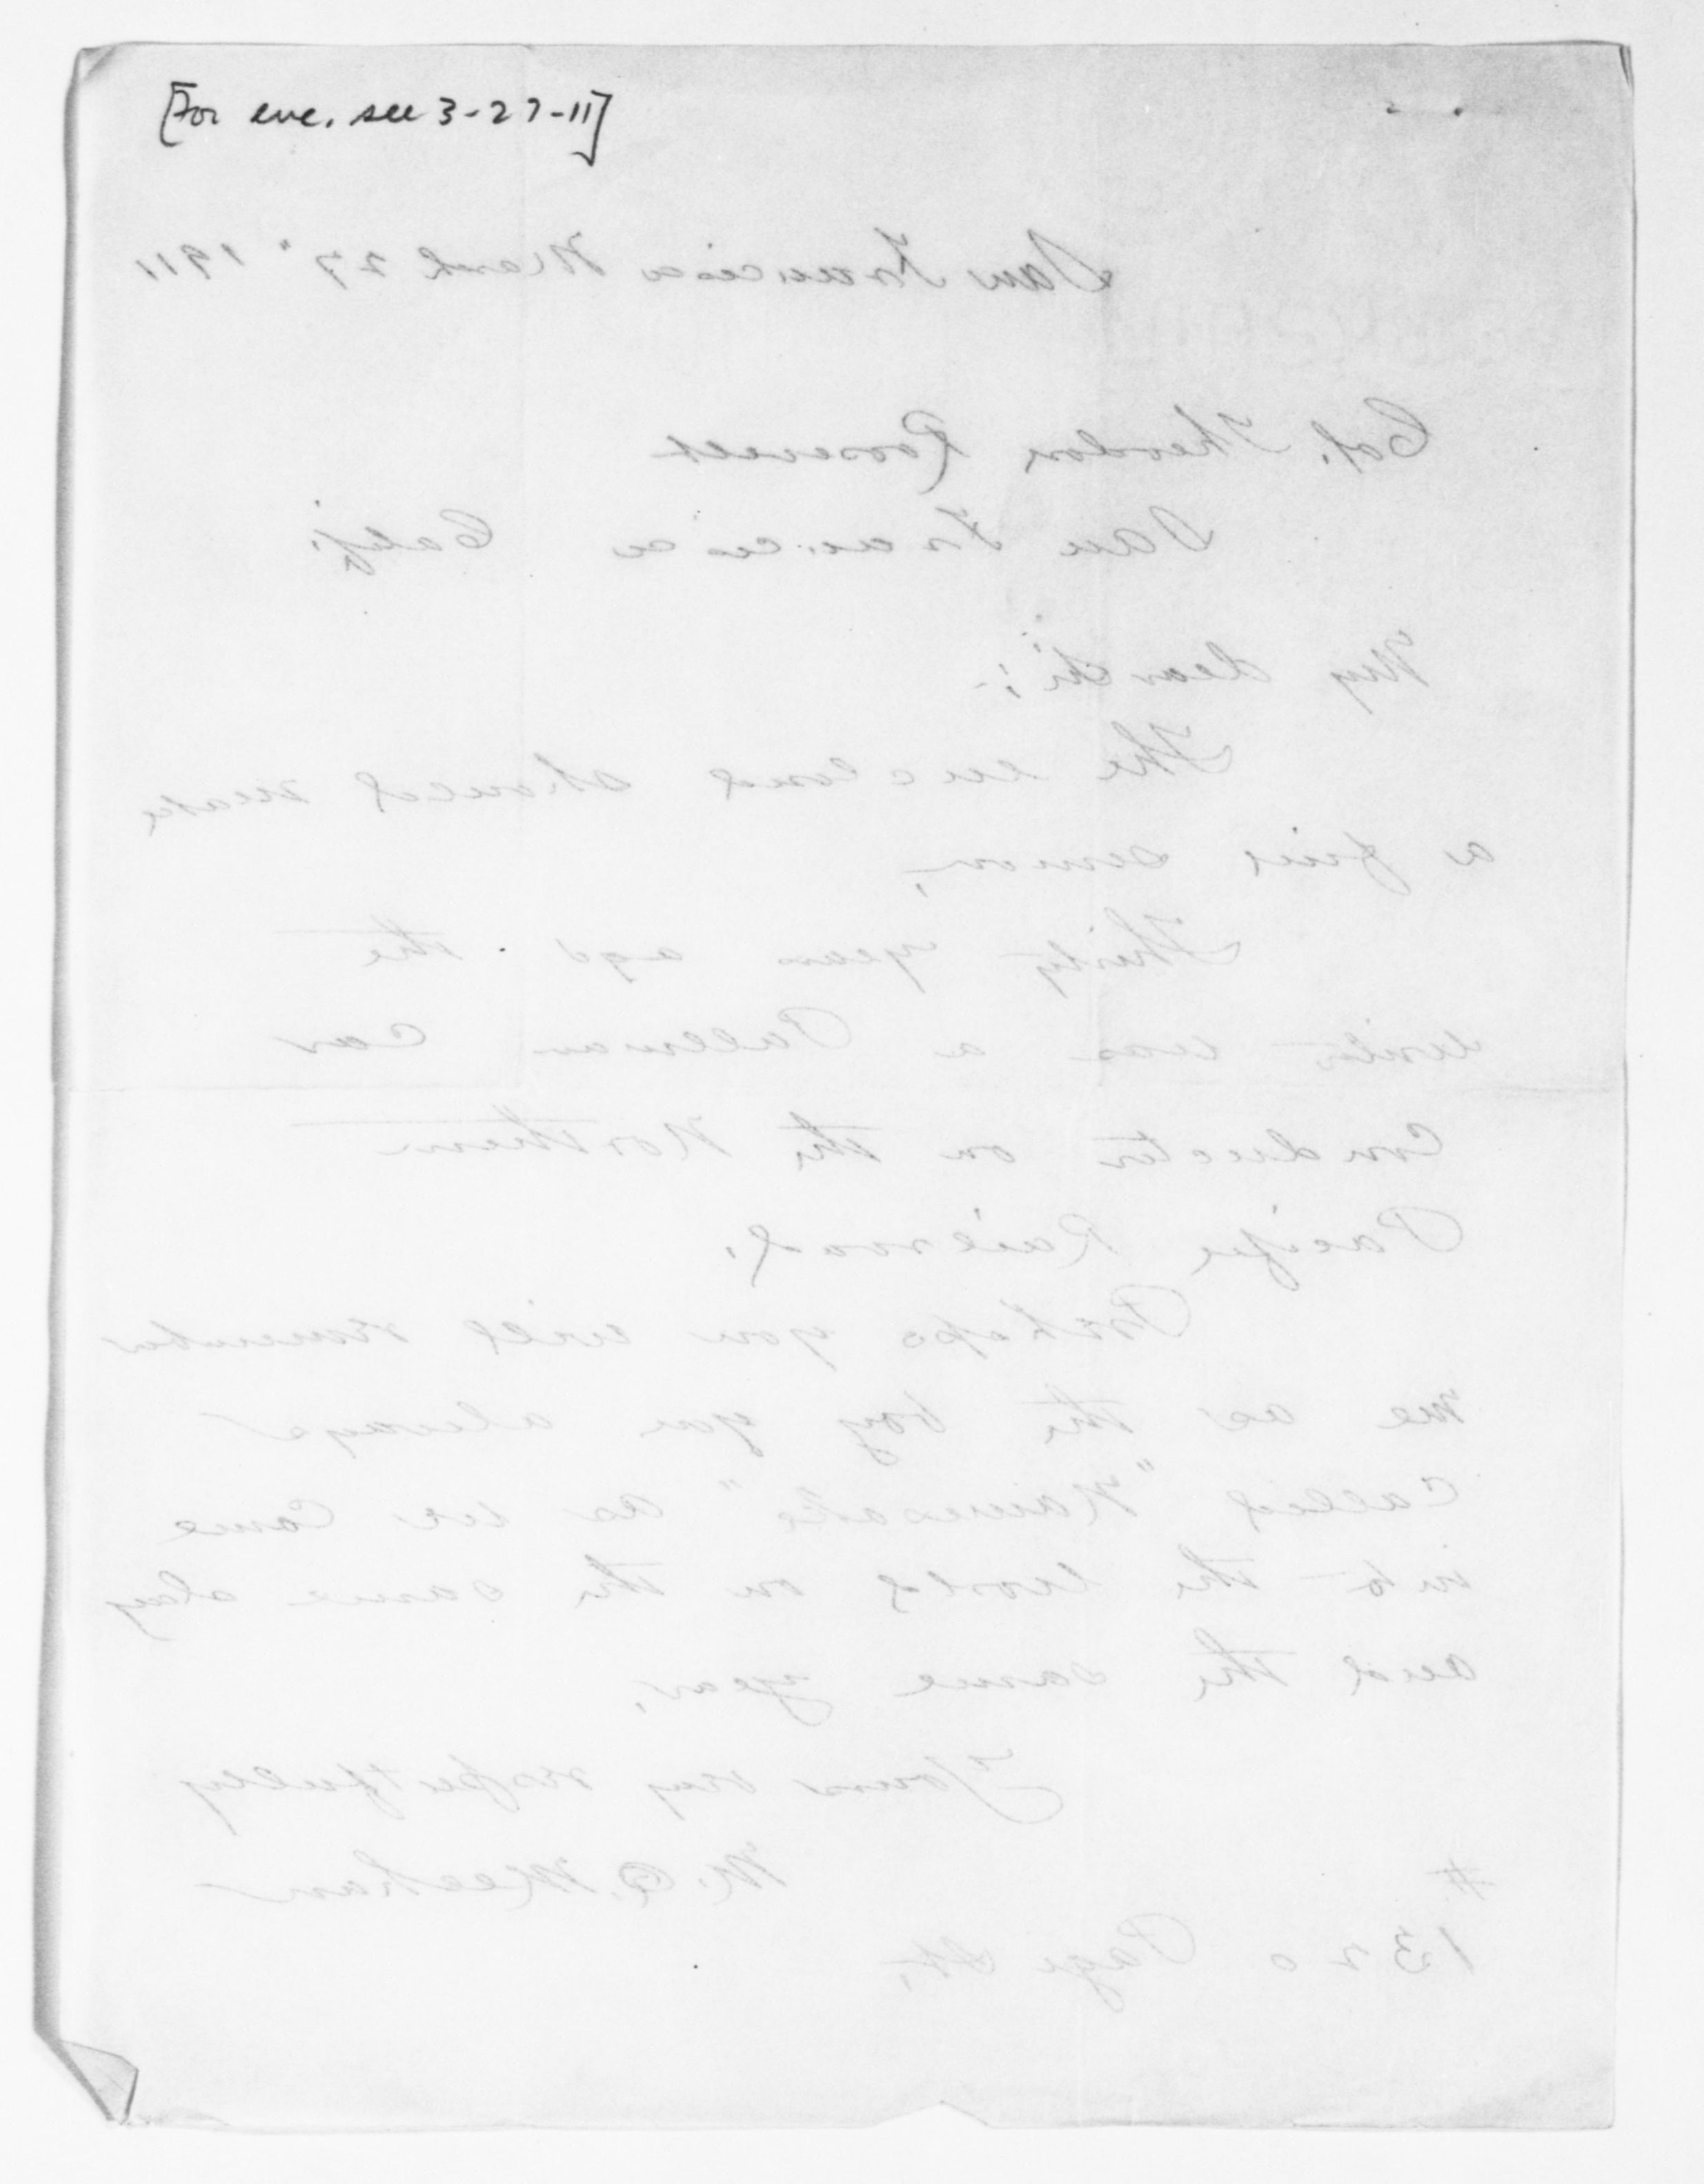 [For enc. see 3-27-11]
San Francisco March 27" 1911
Col. Theodore Roosevelt
San Francisco Calif.
My dear Sir:-
The enclosed should make
a fine sermon,
Thirty years ago the
writer was a Pullman car
Conductor on the Northern
Pacific Railroad.
Perhaps you will remember
me as the boy you always
called "Namesake" as we came
into the world on the same day
and the same year.
Yours very respectfully
M. Q. Meehan
#
1320 Page St.